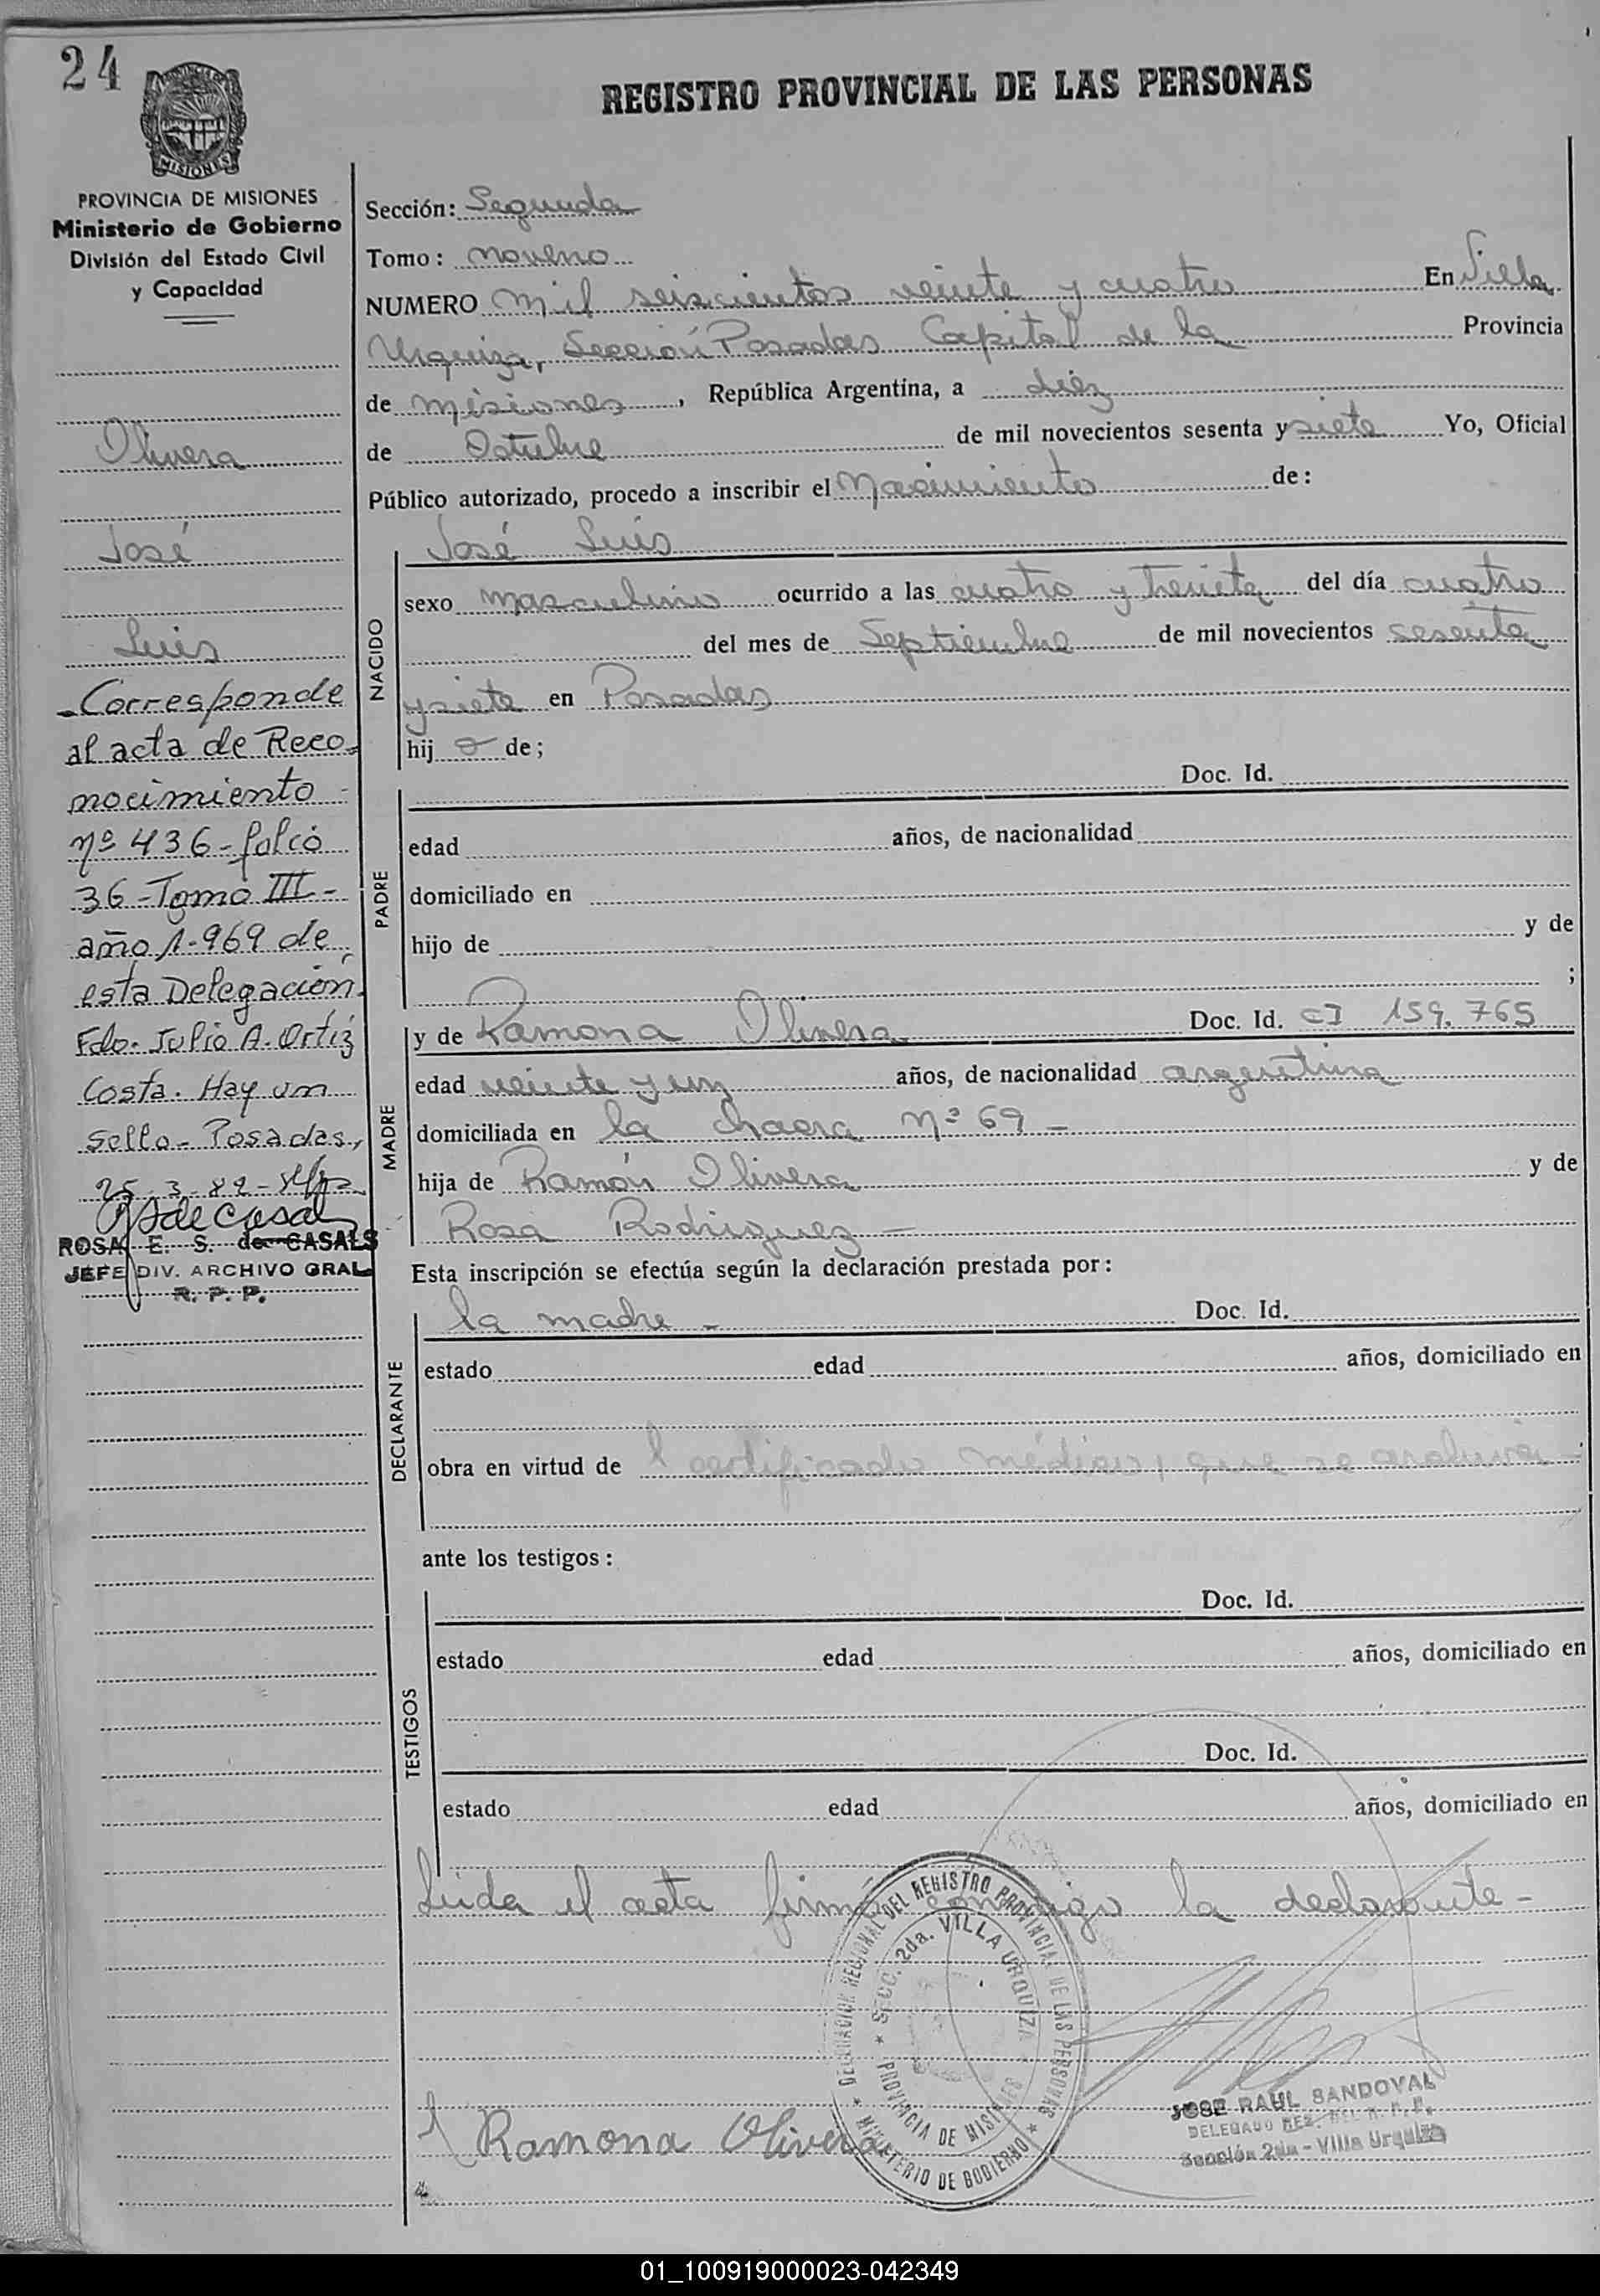 24
REGISTRO PROVINCIAL DE LAS PERSONAS
MISIONES
PROVINCIA DE MISIONES
Ministerio de Gobierno
División del Estado Civil
y Capacidad
Olivera
José
Luis
- Corresponde
al acta de Reco-
nocimiento
nº 436 - folio
36 - Tomo III -
año 1.969 de
esta Delegación.
Fdo. Julio A. Ortiz
Costa. Hay un
Sello - Posadas,
25 3 82 -
ROSA E. S. de CASALS
JEFE DIV. ARCHIVO GRAL.
R. P. P.
Sección: Segunda
Tomo: Noveno
NUMERO Mil seiscientos veinte y cuatro En Villa
Urquiza, Sección Posadas Capital de la Provincia
de Misiones, República Argentina, a diez
de Octubre de mil novecientos sesenta y siete Yo, Oficial
Público autorizado, procedo a inscribir el Nacimiento de:
NACIDO
José Luis
sexo masculino ocurrido a las cuatro y treinta del día cuatro
del mes de Septiembre de mil novecientos sesenta
y siete en Posadas
hij o de;
PADRE
Doc. Id.
edad años, de nacionalidad
domiciliado en
hijo de y de
;
MADRE
y de Ramona Olivera Doc. Id. CI 159.765
edad veinte y un años, de nacionalidad argentina
domiciliada en la chacra Nº 69 -
hija de Ramón Olivera y de
Rosa Rodriguez -
Esta inscripción se efectúa según la declaración prestada por:
DECLARANTE
la madre - Doc. Id.
estado edad años, domiciliado en
obra en virtud de l certificado médico, que se archiva -
ante los testigos:
TESTIGOS
Doc. Id.
estado edad años, domiciliado en
Doc. Id.
estado edad años, domiciliado en
Leida el acta firma conmigo la declarante -
DELEGACION REGIONAL DEL REGISTRO PROVINCIAL DE LAS PERSONAS
SECC. 2da. VILLA URQUIZA
PROVINCIA DE MISIONES
MINISTERIO DE GOBIERNO
Ramona Olivera
JOSE RAUL SANDOVAL
DELEGADO REG. DEL R. P. P.
Sección 2da - Villa Urquiza
01_100919000023-042349